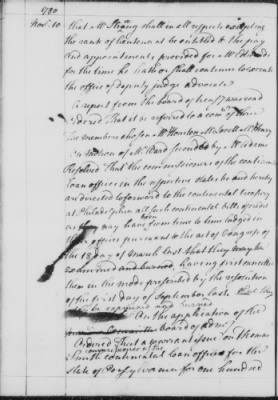 1780
Nov. 10.
that Mr Strong shall in all respects excepting
the rank of lieutenant be entitled to the pay
and appointments provided for Mr Edwards
for the time he hath or shall continue to execute
the office of deputy judge advocate
A report from the board of treasury was read
Ordered That it be referred to a comee of three
The members chosen Mr Houston Mr Lovell Mr Henry
On motion of Mr Ward seconded by Mr Adams
Resolved That the commissioners of the continental
loan offices in the respective states be and hereby
are directed to forward to the continental treasury
at Philadelphia all such continental bills of credit
as may have been from time to time lodged in
their offices pursuant to the act of Congress of
the 18 day of March last that they may be
examined and burned, having first cancelled
them in the mode prescribed by the resolution
of the first day of September last
be examined and burned
On the application of the
board of admy
Ordered That a warrant issue on Thomas
Smith commissioner of the continental loan office for the
state of Pensylvania for one hundred